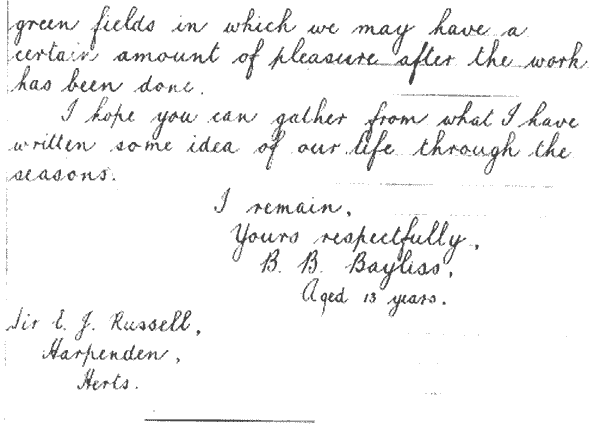 green fields in which we may have a
certain amount of pleasure after the work
has been done.
I hope you can gather from what I have
written some idea of our life through the
seasons.
I remain,
Yours respectfully,
B. B. Bayliss,
Aged 13 years.
Sir E. J. Russell,
Harpenden,
Herts.